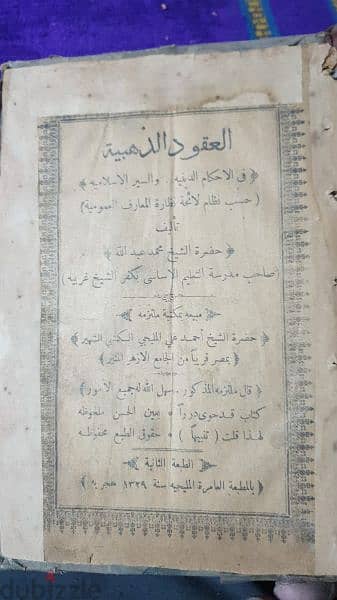 العقود الذهبية
﴿ في الاحكام الدينيه . والسير الاسلاميه ﴾
( حسب نظام لائحة نظارة المعارف العمومية )
تأليف
﴿ حضرة الشيخ محمد عبد الله ﴾
( صاحب مدرسة التعليم الاساسى بكفر الشيخ غربيه )
﴿ مبيعه بمكتبة ملتزمه ﴾
﴿ حضرة الشيخ أحمد علي المليجي الكتبي الشهير ﴾
﴿ بمصر قريباً من الجامع الازهر المنير ﴾
﴿ قال ملتزمه المذكور . سهل الله له جميع الامور ﴾
كتاب قد حوى درراً • بعين الحسن ملحوظه
لهذا قلت ( تنبيهاً ) • حقوق الطبع محفوظه
﴿ الطبعة الثانية ﴾
﴿ بالمطبعة العامرة المليجيه سنة ١٣٢٩ هجريه ﴾
dubizzle